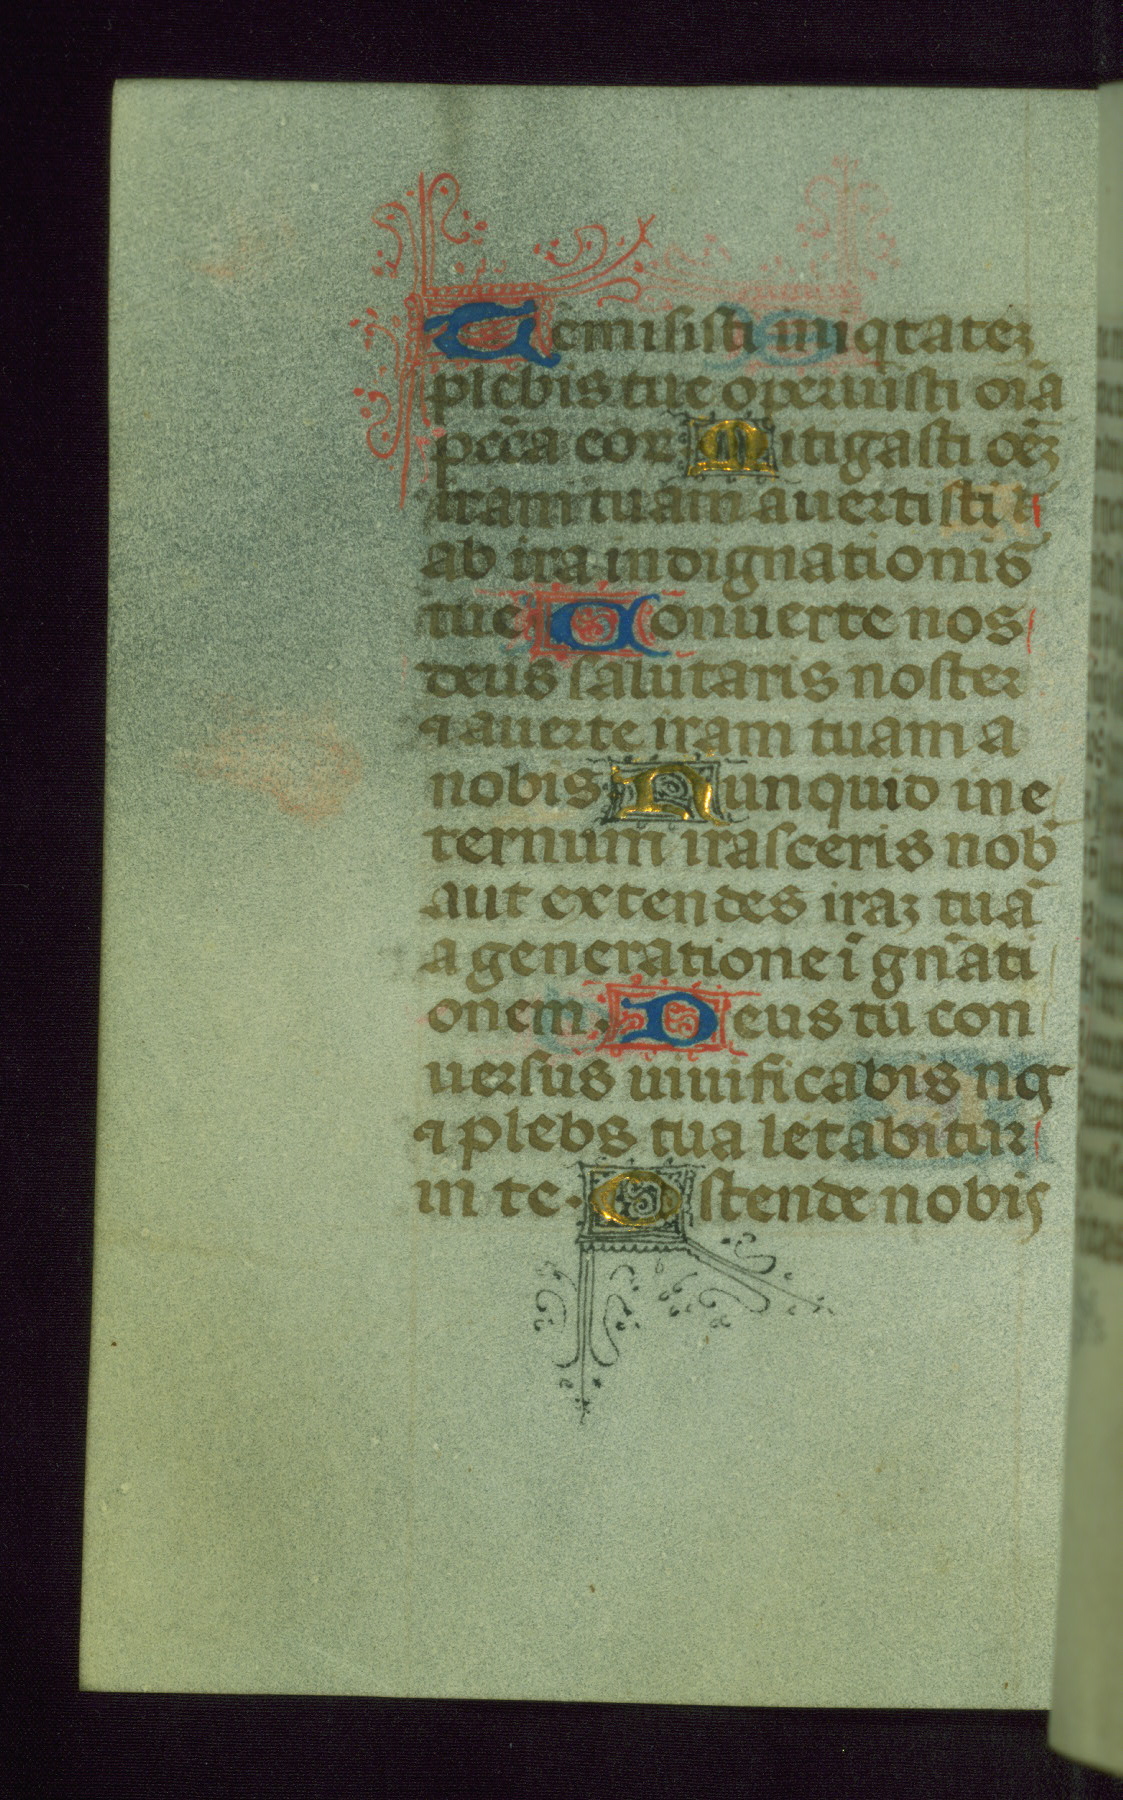 Remisisti iniqtatez
plebis tue operuisti oīa
peccā eorꝫ Mitigasti oēz
iram tuam auertisti ꝛ
ab ira indignationis
tue Conuerte nos
deus salutaris noster
⁊ auerte iram tuam a
nobis Nunquid in e
ternum irasceris nob̄
aut extendes iraz tuā
a generatione ī gnāti
onem. Deus tu con
uersus uiuificabis nos
⁊ plebs tua letabitur
in te. Ostende nobis